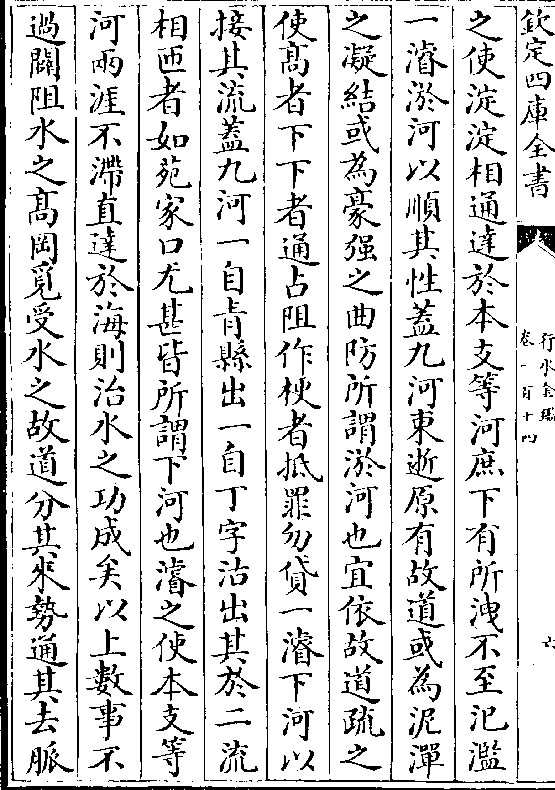 欽定四庫全書
行水金鑑
卷一百十四
六
之使淀淀相通達於本支等河庶下有所洩不至氾濫
一濬淤河以順其性蓋九河東逝原有故道或為泥潬
之凝結或為豪强之曲防所謂淤河也宜依故道疏之
使髙者下下者通占阻作梗者抵罪勿貸一濬下河以
接其流蓋九河一自青縣出一自丁字沽出其於二流
相匝者如苑家口尤甚皆所謂下河也濬之使本支等
河兩涯不滯直達於海則治水之功成矣以上數事不
過闢阻水之髙岡覓受水之故道分其來勢通其去脈